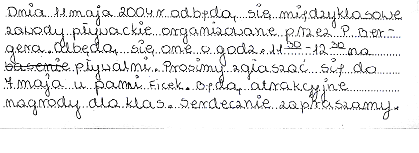 Dnia 11 maja 2004 r odbędą się międzyklasowe
zawody pływackie organizowane przez P. Ber-
gera. Odbędą się one o godz. 11⁵⁰-12³⁰ na
basenie pływalni. Prosimy zgłaszać się do
7 maja u pani Ficek. Będą atrakcyjne
nagrody dla klas. Serdecznie zapraszamy.